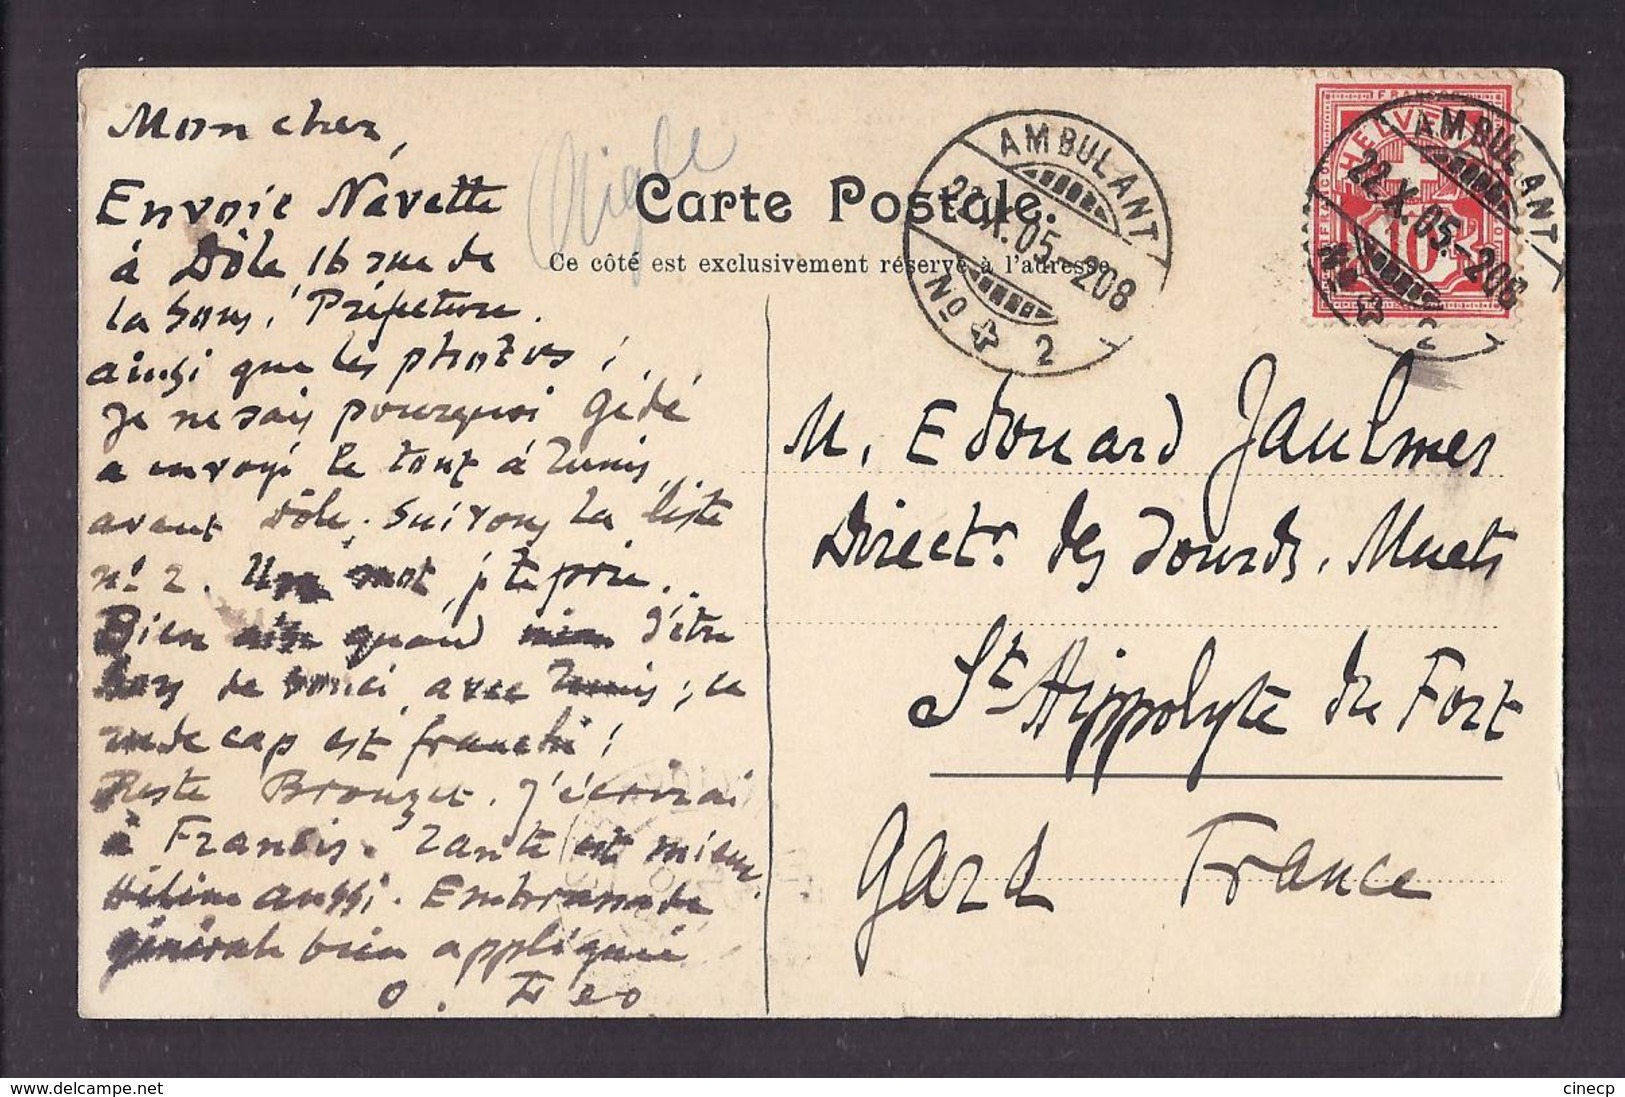 Mon cher,
Envoie Navette
à Dôle, 16 rue de
la Sous, Préfecture.
ainsi que les photos ;
je ne sais pourquoi Gédé
a envoyé le tout à Tunis
avant Dôle. Suivons la liste
n° 2. Un mot, j' te prie.
Bien quand d'être
hors de souci avec Tunis ; ce
rude cap est franchi !
Reste Brouzet. J'écrirai
à Francis. Tante est mieux.
Hélène aussi. Embrassade
générale bien appliquée
O. Féo
Aigle
Carte Postale.
Ce côté est exclusivement réservé à l'adresse
AMBULANT
22.X.05.-208
No 2
FRANCO
HELVETIA
10
AMBULANT
22.X.05.-208
No 2
M. Edouard Jaulmes
Direct.r des Sourds. Muets
St. Hippolyte du Fort
Gard France
delcampe.net
cinecp